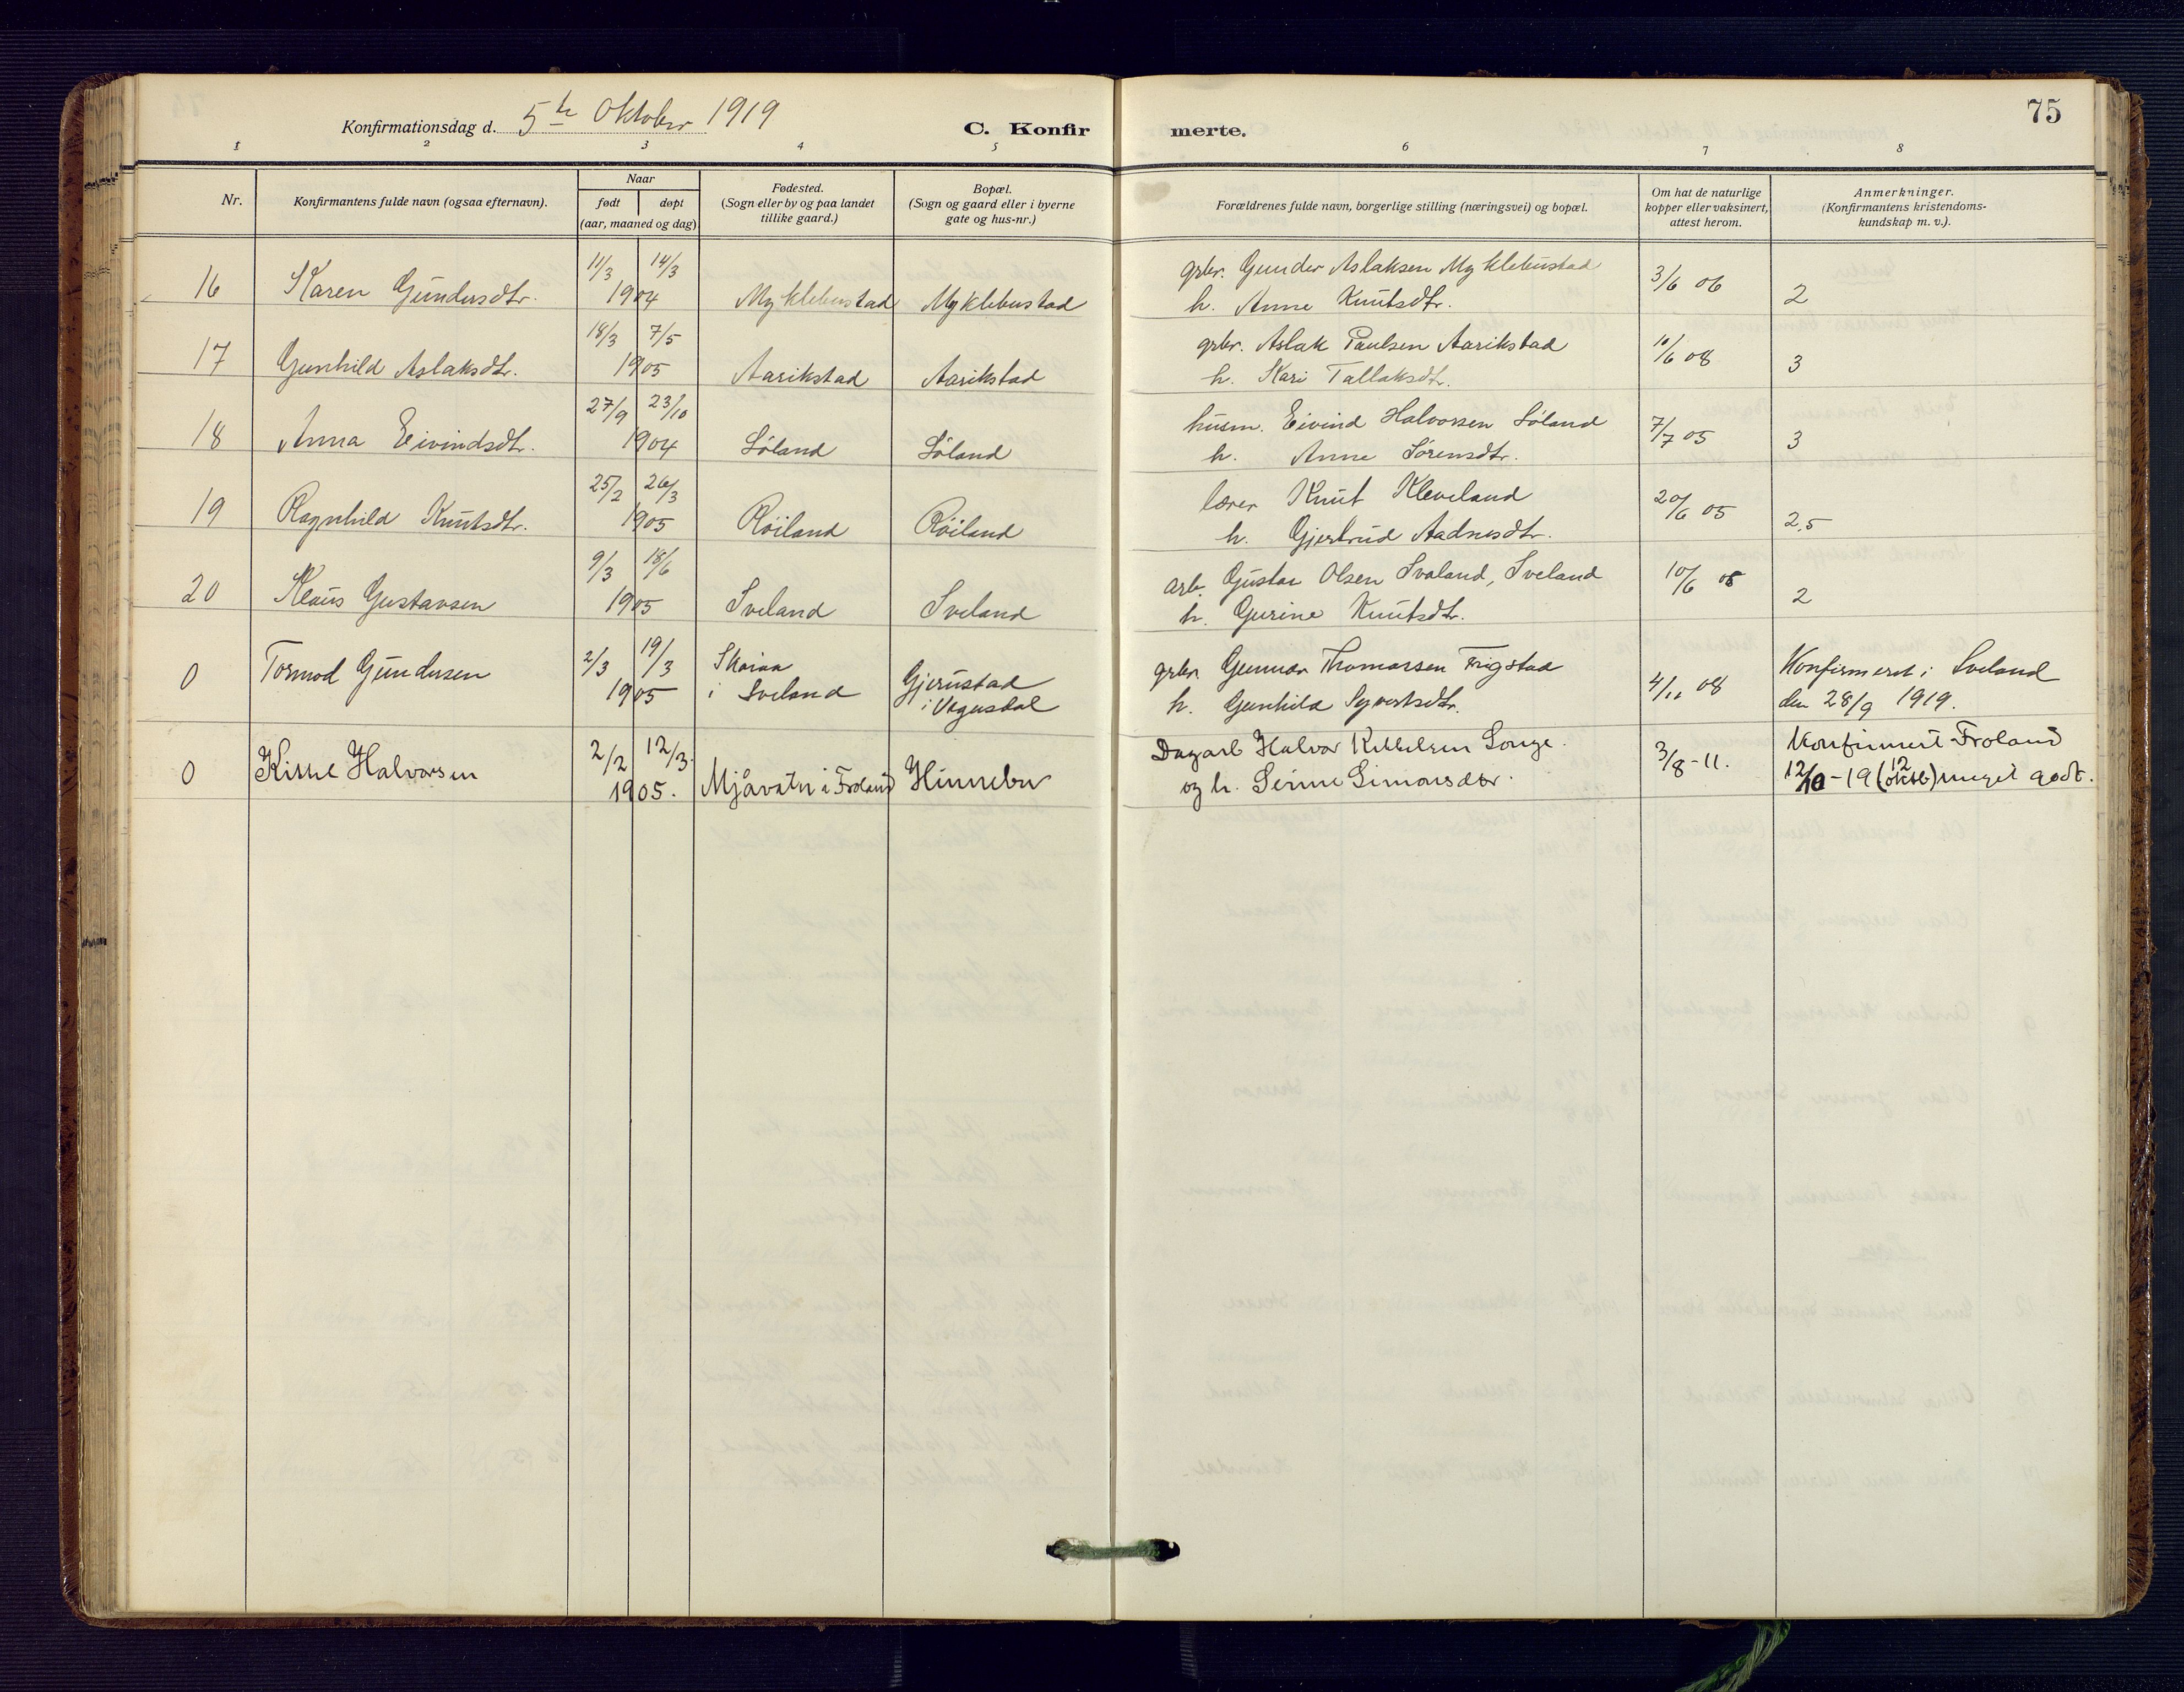 75
Konfirmationsdag d. 5te Oktober 1919 C. Konfirmerte.
1 2 3 4 5 6 7 8
Nr. Konfirmantens fulde navn (ogsaa efternavn). Naar født døpt (aar, maaned og dag) Fødested. (Sogn eller by og paa landet tillike gaard.) Bopæl. (Sogn og gaard eller i byerne gate og hus-nr.) Forældrenes fulde navn, borgerlige stilling (næringsvei) og bopæl. Om hat de naturlige kopper eller vaksinert, attest herom. Anmerkninger. (Konfirmantens kristendomskundskap m. v.).
11/3 14/3 grbr. Gunder Aslaksen Myklebustad
16 Karen Gundersdtr. 1904 Myklebustad Myklebustad h. Anne Knutsdtr. 3/6 06 2
18/3 7/5 grbr. Aslak Paulsen Aarikstad
17 Gunhild Aslaksdtr. 1905 Aarikstad Aarikstad h. Kari Tallaksdtr. 10/6 08 3
27/9 23/10 husm. Eivind Halvorsen Løland
18 Anna Eivindsdtr. 1904 Løland Løland h. Anne Sørensdtr. 7/7 05 3
25/2 26/3 lærer Knut Kleveland
19 Ragnhild Knutsdtr. 1905 Røiland Røiland h. Gjertrud Aadnesdtr. 20/6 05 2,5
9/3 18/6 arb. Gustav Olsen Svaland, Sveland
20 Klaus Gustavsen 1905 Sveland Sveland h. Gurine Knutsdtr. 10/6 08 2
2/3 19/3 Skaiaa grbr. Gunnar Thomassen Trigstad Konfirmert i Sveland
0 Tormod Gundersen 1905 i Sveland Gjerustad i Vegusdal h. Gunhild Syvertsdtr. 4/11 08 den 28/9 1919.
2/2 12/3. Dagarb. Halvor Kittelsen Songe. Konfirmert Froland
0 Kittel Halvorsen 1905. Mjåvatn i Froland Hinnebu og h. Serine Simonsdtr. 3/8-11. 12/10-19 (12 oktb) meget godt.